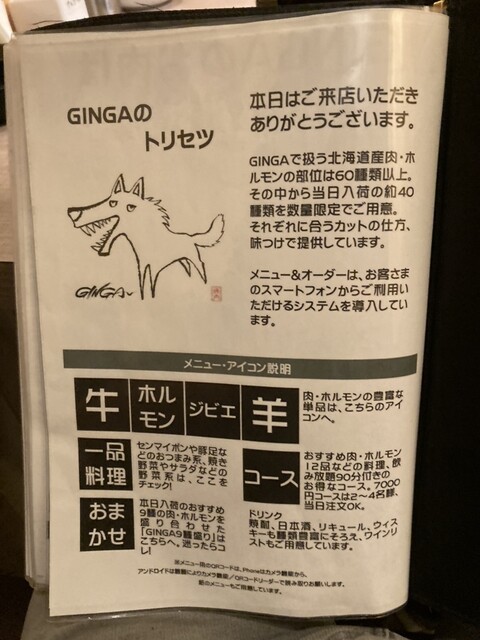 GINGAの
トリセツ
本日はご来店いただき
ありがとうございます。
GINGAで扱う北海道産肉・ホ
ルモンの部位は60種類以上。
その中から当日入荷の約40
種類を数量限定でご用意。
それぞれに合うカットの仕方、
味つけで提供しています。
メニュー&オーダーは、お客さま
のスマートフォンからご利用い
ただけるシステムを導入してい
ます。
GINGA
メニュー・アイコン説明
牛
ホル
モン
ジビエ
羊
肉・ホルモンの豊富な
単品は、こちらのアイ
コンへ。
一品
料理
センマイポンや豚足な
どのおつまみ系、焼き
野菜やサラダなどの
野菜系は、ここを
チェック!
コース
おすすめ肉・ホルモン
12品などの料理、飲
み放題90分付きの
お得なコース。7000
円コースは2〜4名様、
当日注文OK。
おま
かせ
本日入荷のおすすめ
9種の肉・ホルモンを
盛り合わせた
「GINGA9種盛り」は
こちらへ。迷ったらコ
レ!
ドリンク
焼酎、日本酒、リキュール、ウィス
キーも種類豊富にそろえ、ワインリ
ストもご用意しています。
※メニュー用のQRコードは、iPhoneはカメラ機能から、
アンドロイドは機種によりカメラ機能/QRコードリーダーで読み取りお願いします。
紙のメニューもご用意しています。